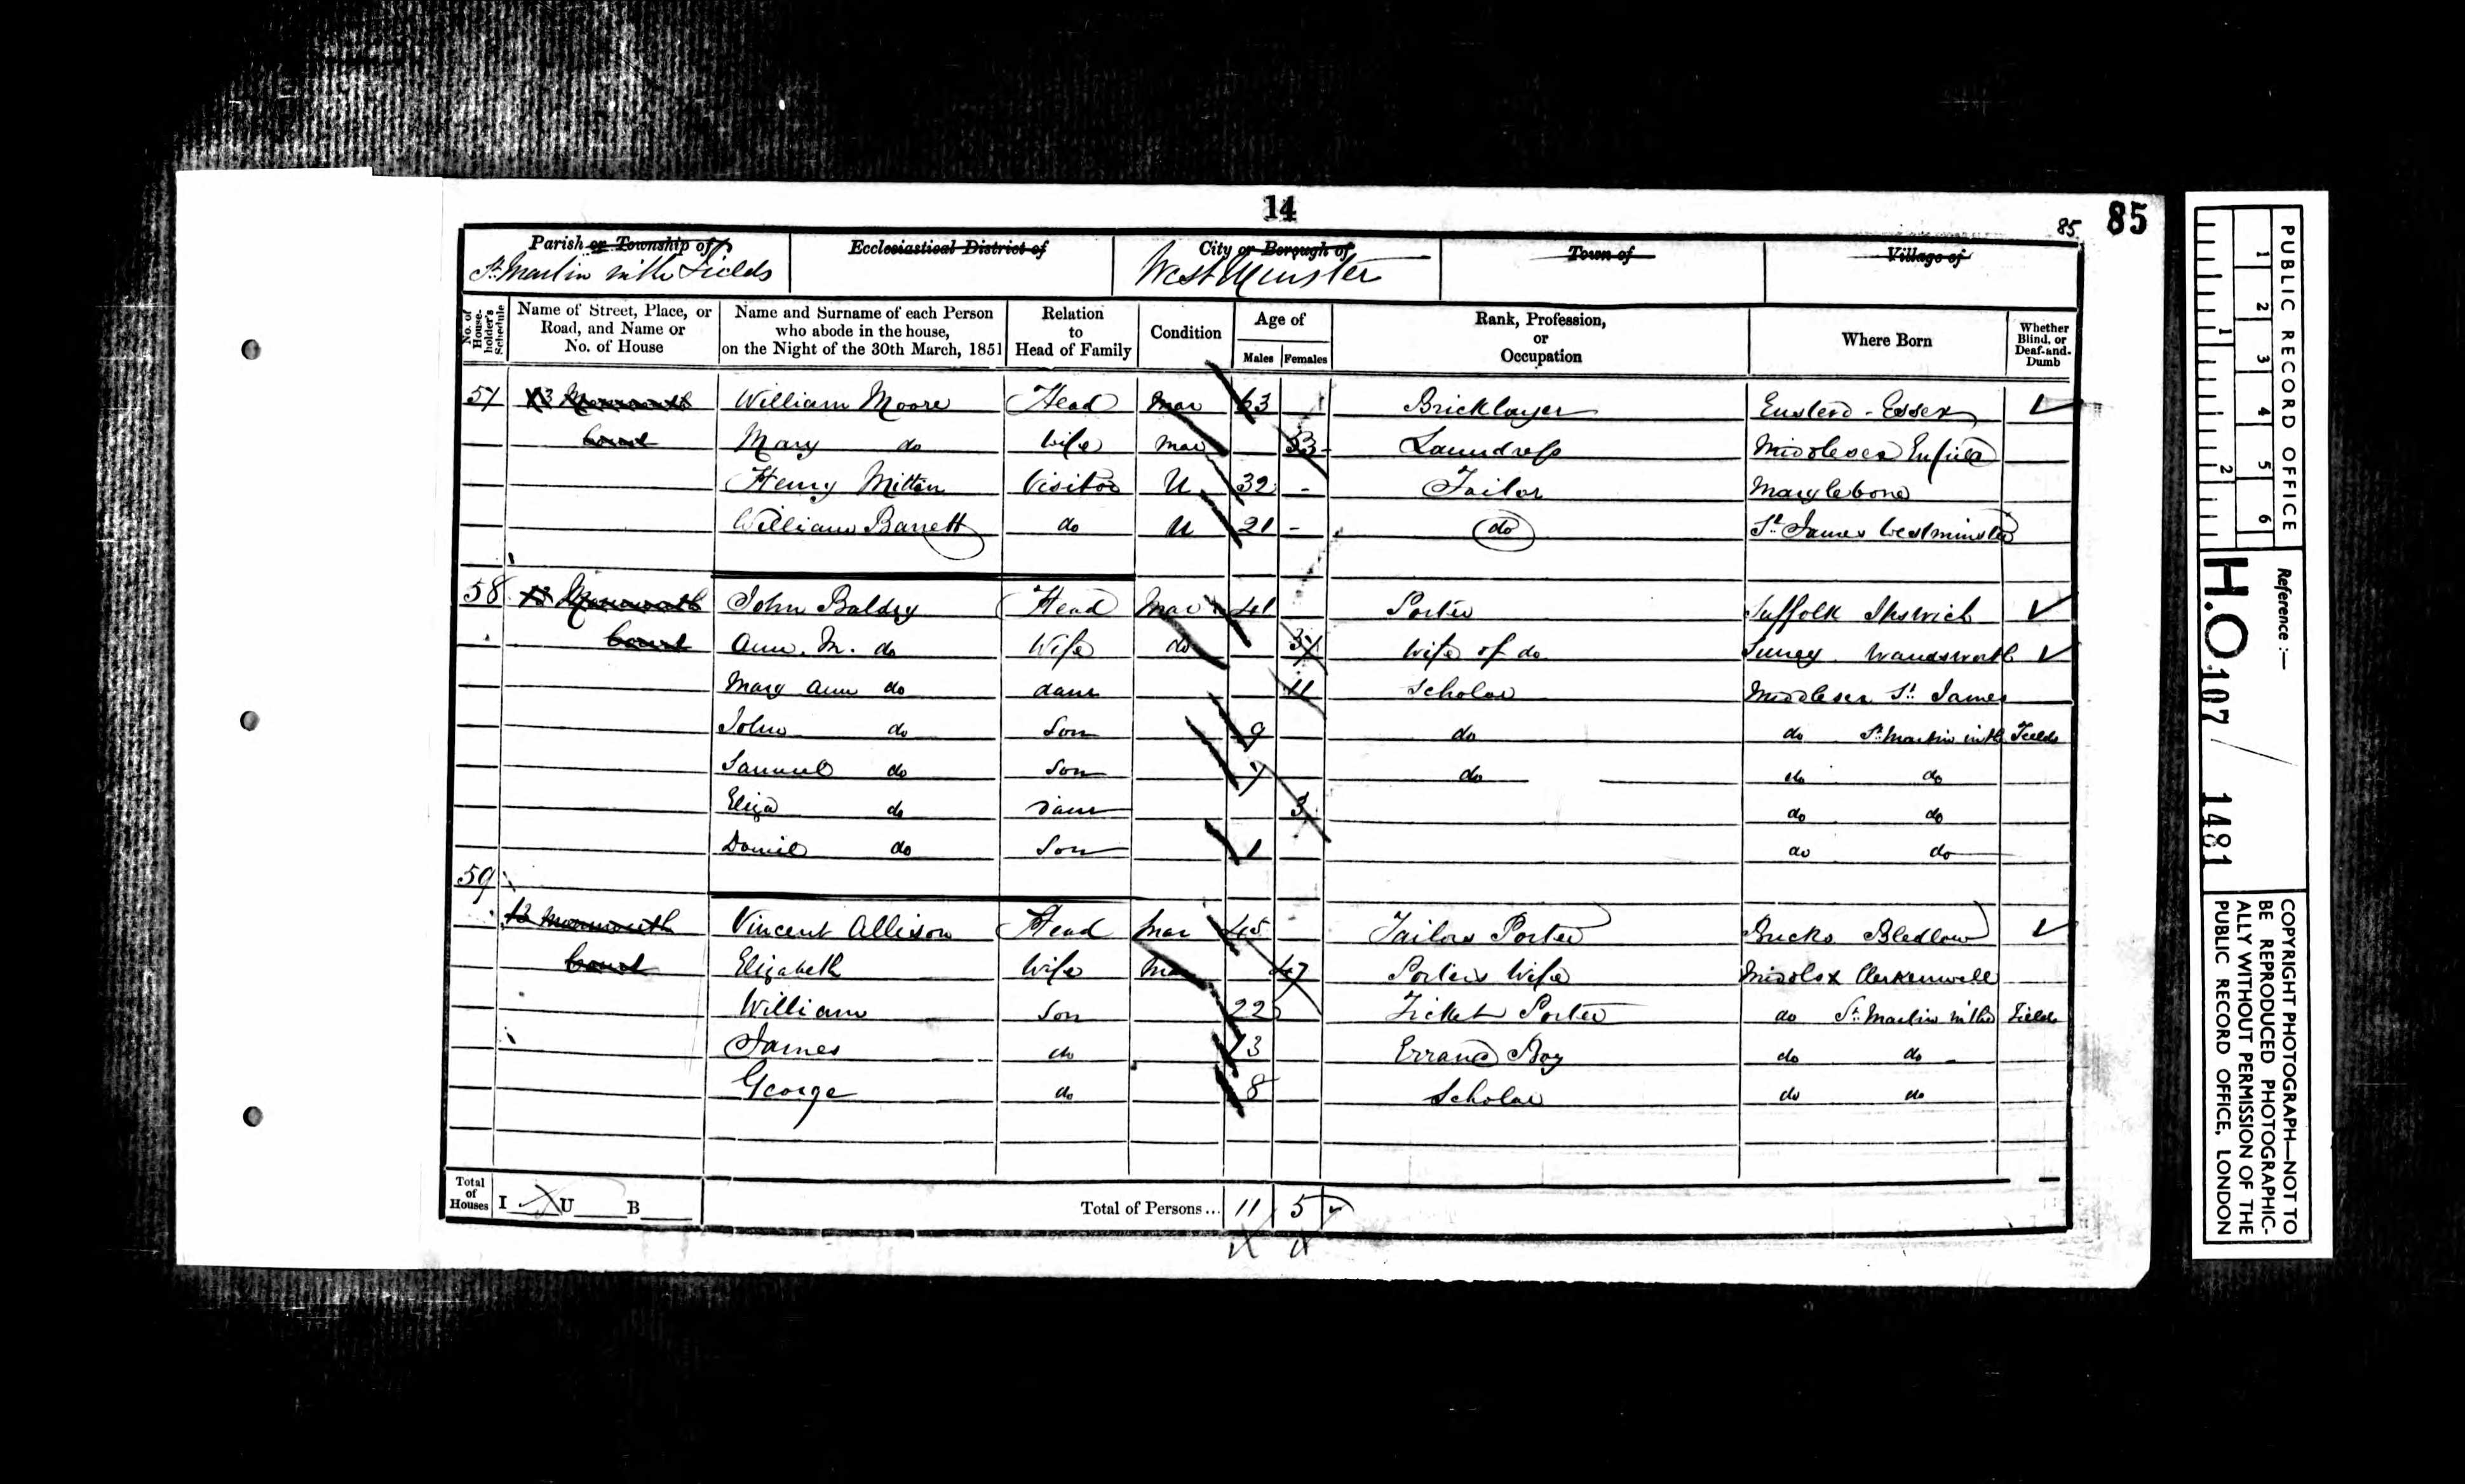 14
85
85
Parish or Township of
Ecclesiastical District of
City or Borough of
Town of
Village of
St Martin in the Fields
WestMinster
No. of House-holder's Schedule
Name of Street, Place, or Road, and Name or No. of House
Name and Surname of each Person who abode in the house, on the Night of the 30th March, 1851
Relation to Head of Family
Condition
Age of
Males
Females
Rank, Profession, or Occupation
Where Born
Whether Blind, or Deaf-and-Dumb
57 13 Monmouth William Moore Head Mar 63 Bricklayer Essex
Court Mary do Wife Mar 53 Laundress Middlesex Enfield
Henry Mitton Visitor U 32 - Tailor Marylebone
William Barrett do U 21 - do St James Westminster
58 13 Monmouth John Baldry Head Mar 41 Porter Suffolk Ipswich
Court Ann. M. do Wife do 37 Wife of do Surrey Wandsworth
Mary Ann do daur 11 Scholar Middlesex St James
John do Son 9 do do St Martin in th Fields
Samuel do Son 7 do do do
Eliza do daur 3 do do
Daniel do Son 1 do do
59
13 Monmouth Vincent Allison Head Mar 45 Tailors Porter Bucks Bledlow
Court Elizabeth Wife Mar 47 Porters Wife Middlsx Clerkenwell
William Son 22 Ticket Porter do St Martin in the Fields
James do 13 Errand Boy do do
George do 8 Scholar do do
Total of Houses
I U B
Total of Persons... 11 5
PUBLIC RECORD OFFICE
1 2 3 4 5 6
1 2
Reference :-
H.O. 107 / 1481
COPYRIGHT PHOTOGRAPH—NOT TO
BE REPRODUCED PHOTOGRAPHIC-
ALLY WITHOUT PERMISSION OF THE
PUBLIC RECORD OFFICE, LONDON